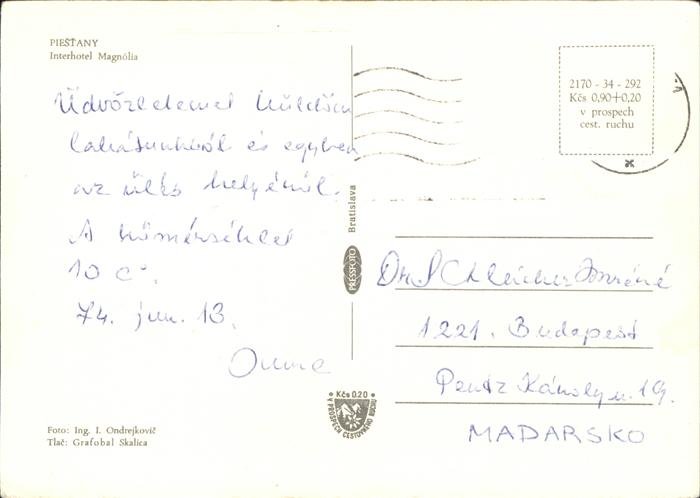 PIEŠŤANY
Interhotel Magnólia
Üdvözletemet küldöm
lakásunkból és egyben
az ülés helyéről.
A hőmérséklet
10 C°.
74. jun. 13.
Imre
Foto: Ing. I. Ondrejkovič
Tlač: Grafobal Skalica
Bratislava
PRESSFOTO
Kčs 0.20
V PROSPECH CESTOVNÉHO RUCHU
2170 - 34 - 292
Kčs 0,90+0,20
v prospech
cest. ruchu
Dr Schleicher Imréné
1221. Budapest
Péntz Károly u. 19.
MADARSKO